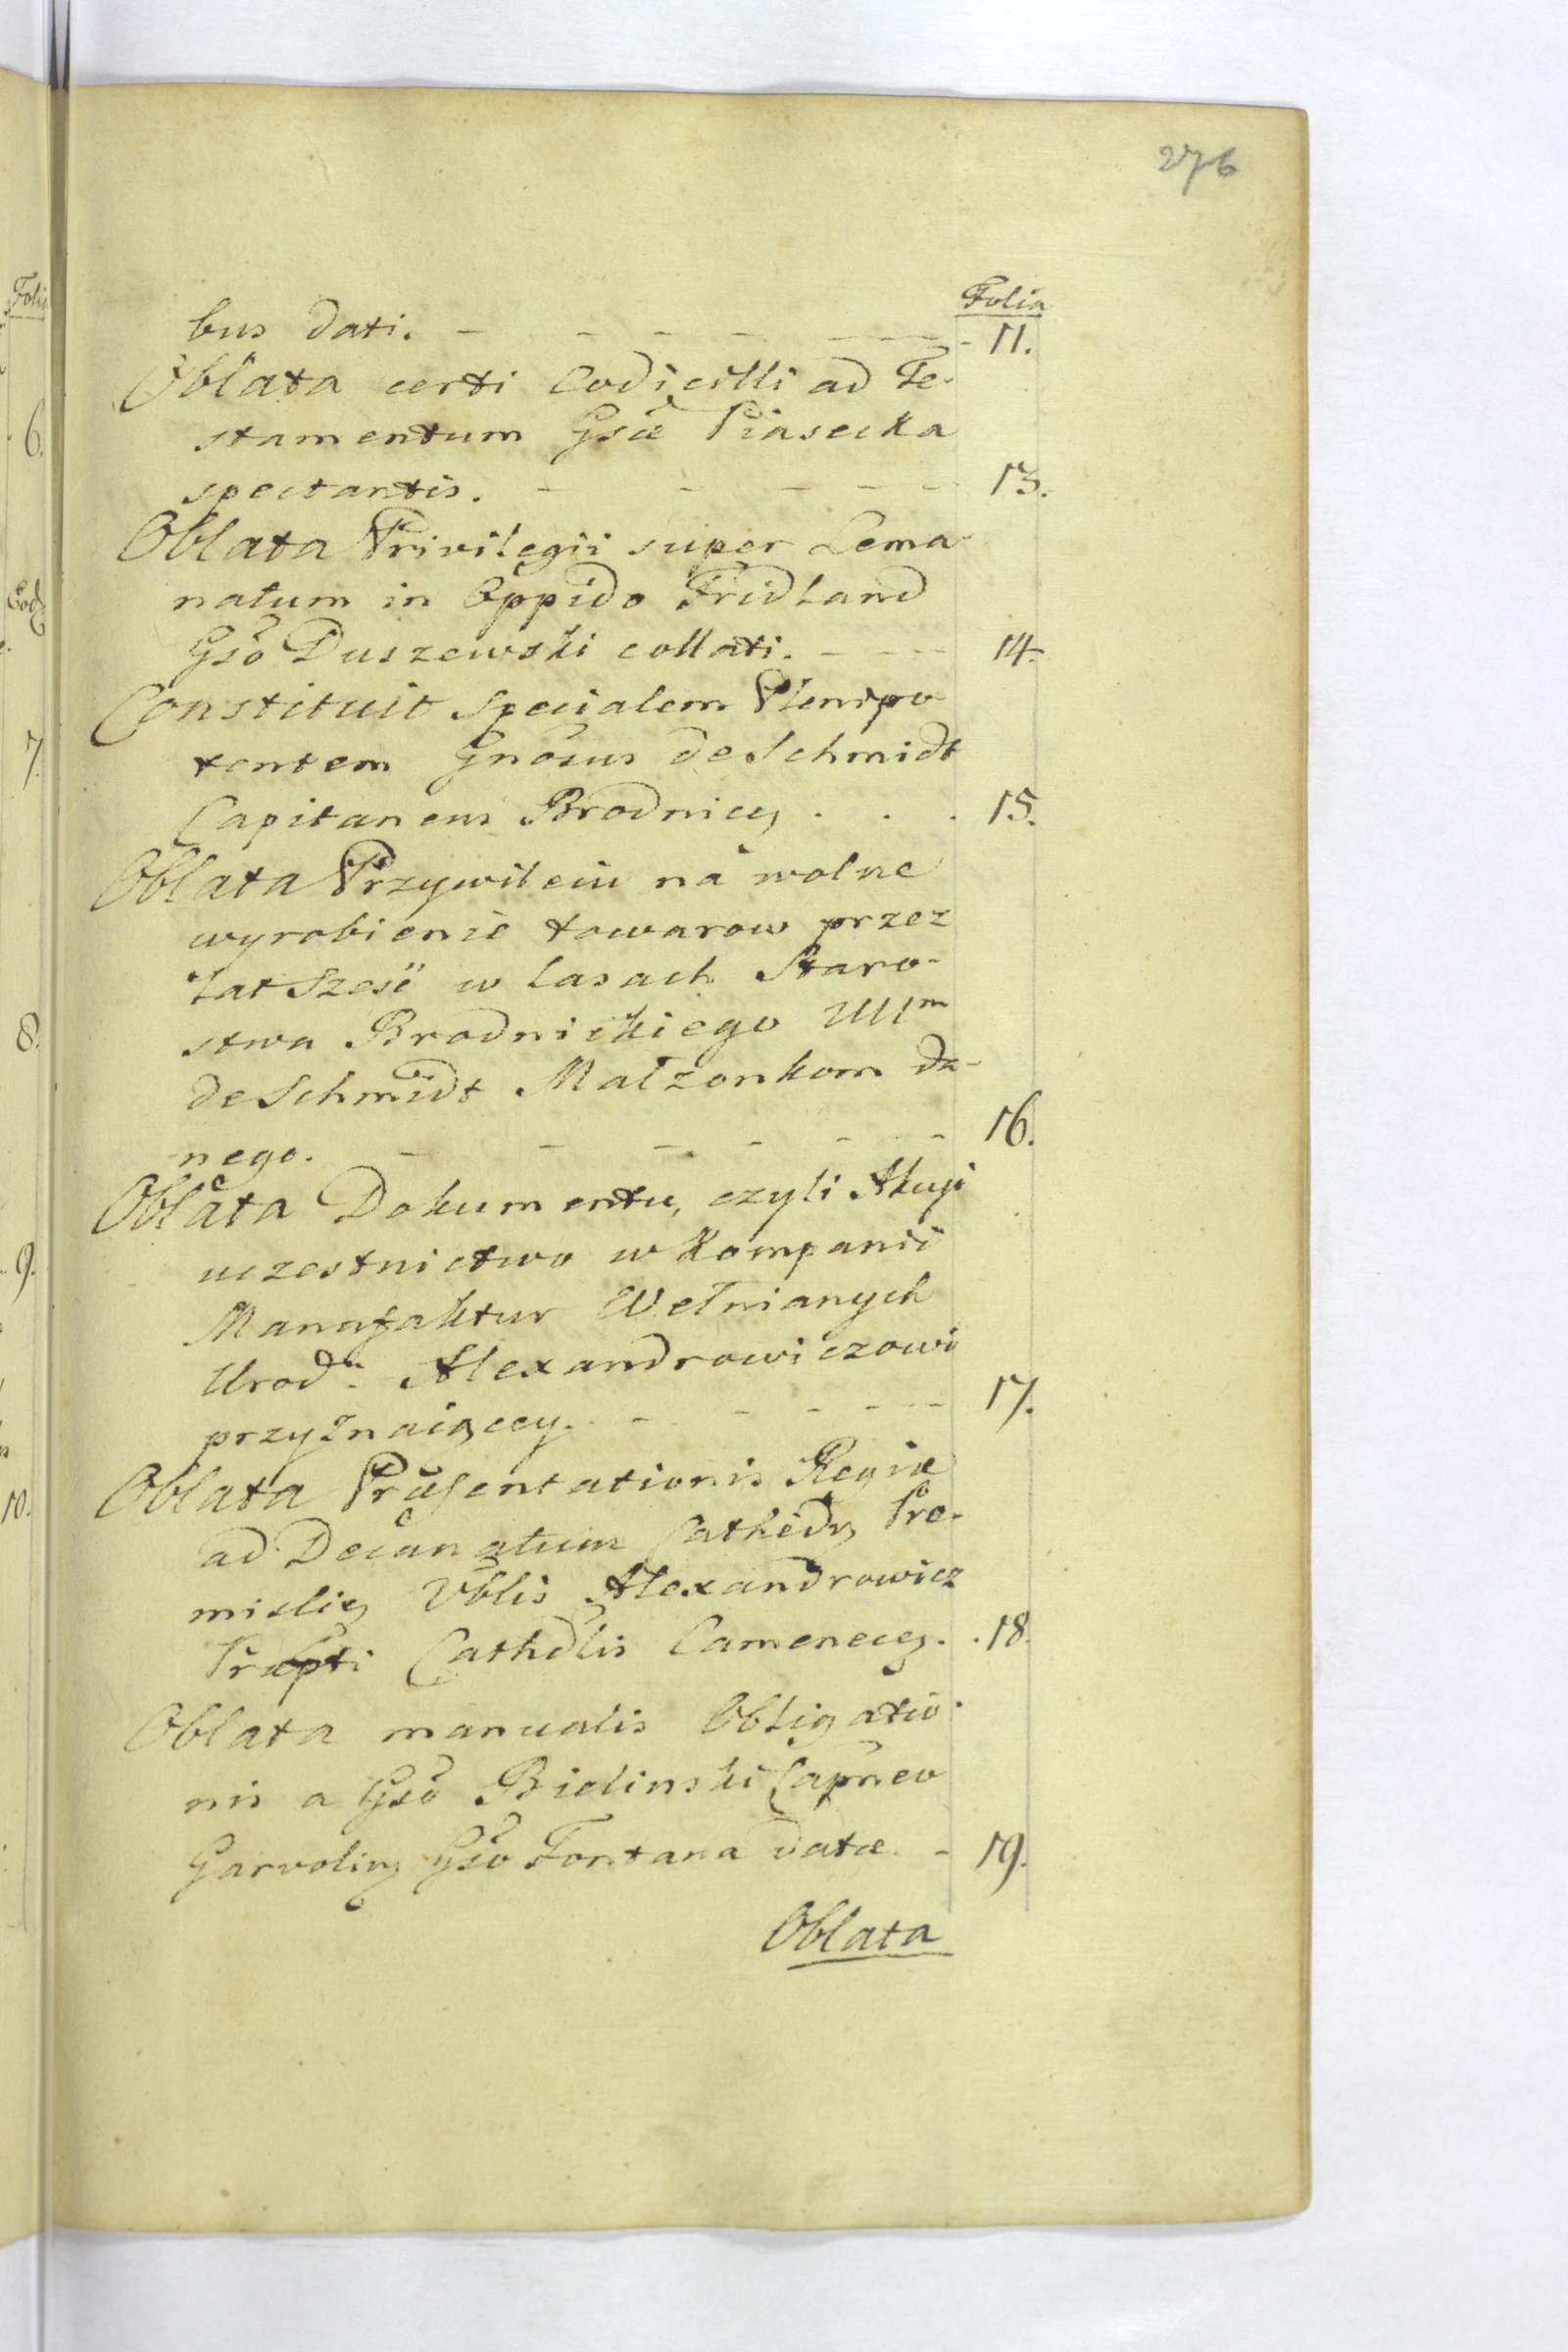 276
Folia
bus dati. - - - - - - - 11.
Oblata certi Codicilli ad Te-
stamentum Gsæ Piasecka
spectantis. - - - - - - 13.
Oblata Privilegii super Lema-
natum in Oppido Fridland
Gso Duszewski collati. - - - 14.
Constituit specialem Plenipo
tentem Gnosus de Schmidt
Capitaneus Brodnicę . . . 15.
Oblata Przywileiu na wolne
wyrobienie towarow przez
lat sześć w lasach Staro-
stwa Brodnickiego UUm
de Schmidt Małżonkom da-
nego. - - - - - - 16.
Oblata Dokumentu, czyli Akcyi
uczestnictwo w Kompanii
Manufaktur Wełnianych
Urod: Alexandrowiczowi
przyznaiącey. - - - - - - 17.
Oblata Præsentationis Regiæ
ad Decanatum Cathedr Pre-
mislię Vblis Alexandrowicz
Præpti Cathdlis Camenecę. . 18.
Oblata manualis Obligatio-
nis a Gso Bielinski Capneo
Garvolinę Gso Fontana datæ. - 19.
Oblata
Folia
6.
7.
8.
9.
10.